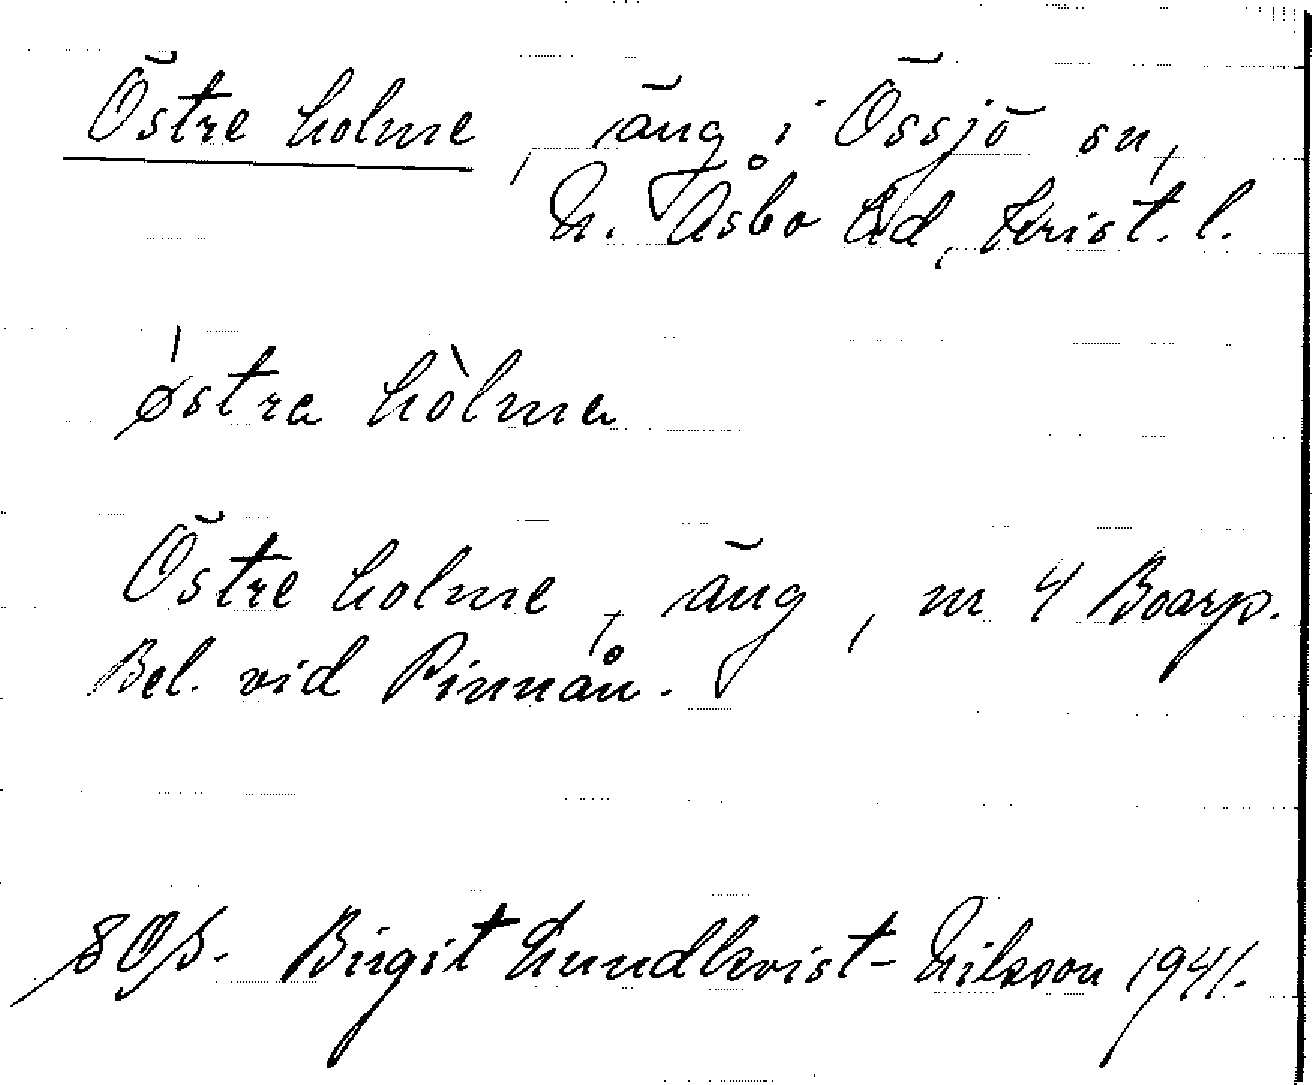 Östre holme, äng i Össjö sn,
N. Åsbo hd, Krist. l.
østra hòlma
Östre holme, äng, nr 4 Boarp.
Bel. vid Pinnån.
Birgit Lundkvist-Nilsson 1941.